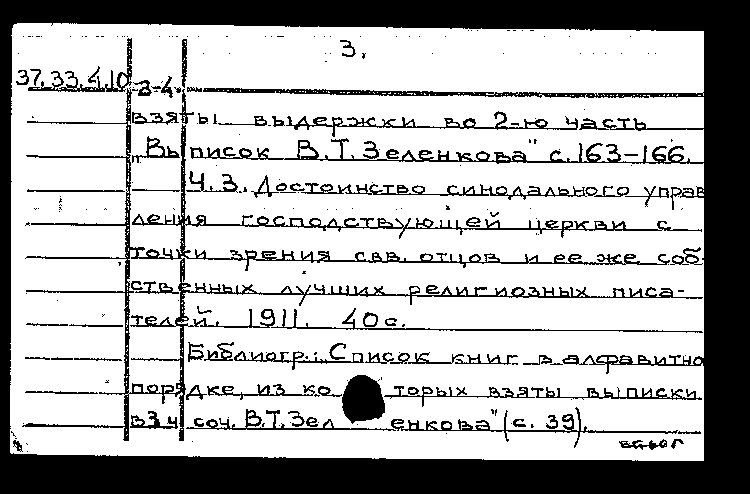 3.
37.33.4.10 3-4
взяты выдержки во 2-ю часть
„Выписок В.Т.Зеленкова" с.163-166.
Ч.3. Достоинство синодального управ
ления господствующей церкви с
точки зрения свв. отцов и ее же соб-
ственных лучших религиозных писа-
телей. 1911. 40с.
Библиогр.: Список книг в алфавитно
порядке, из которых взяты выписки
в 3 ч соч. В.Т.Зеленкова" (с. 39).